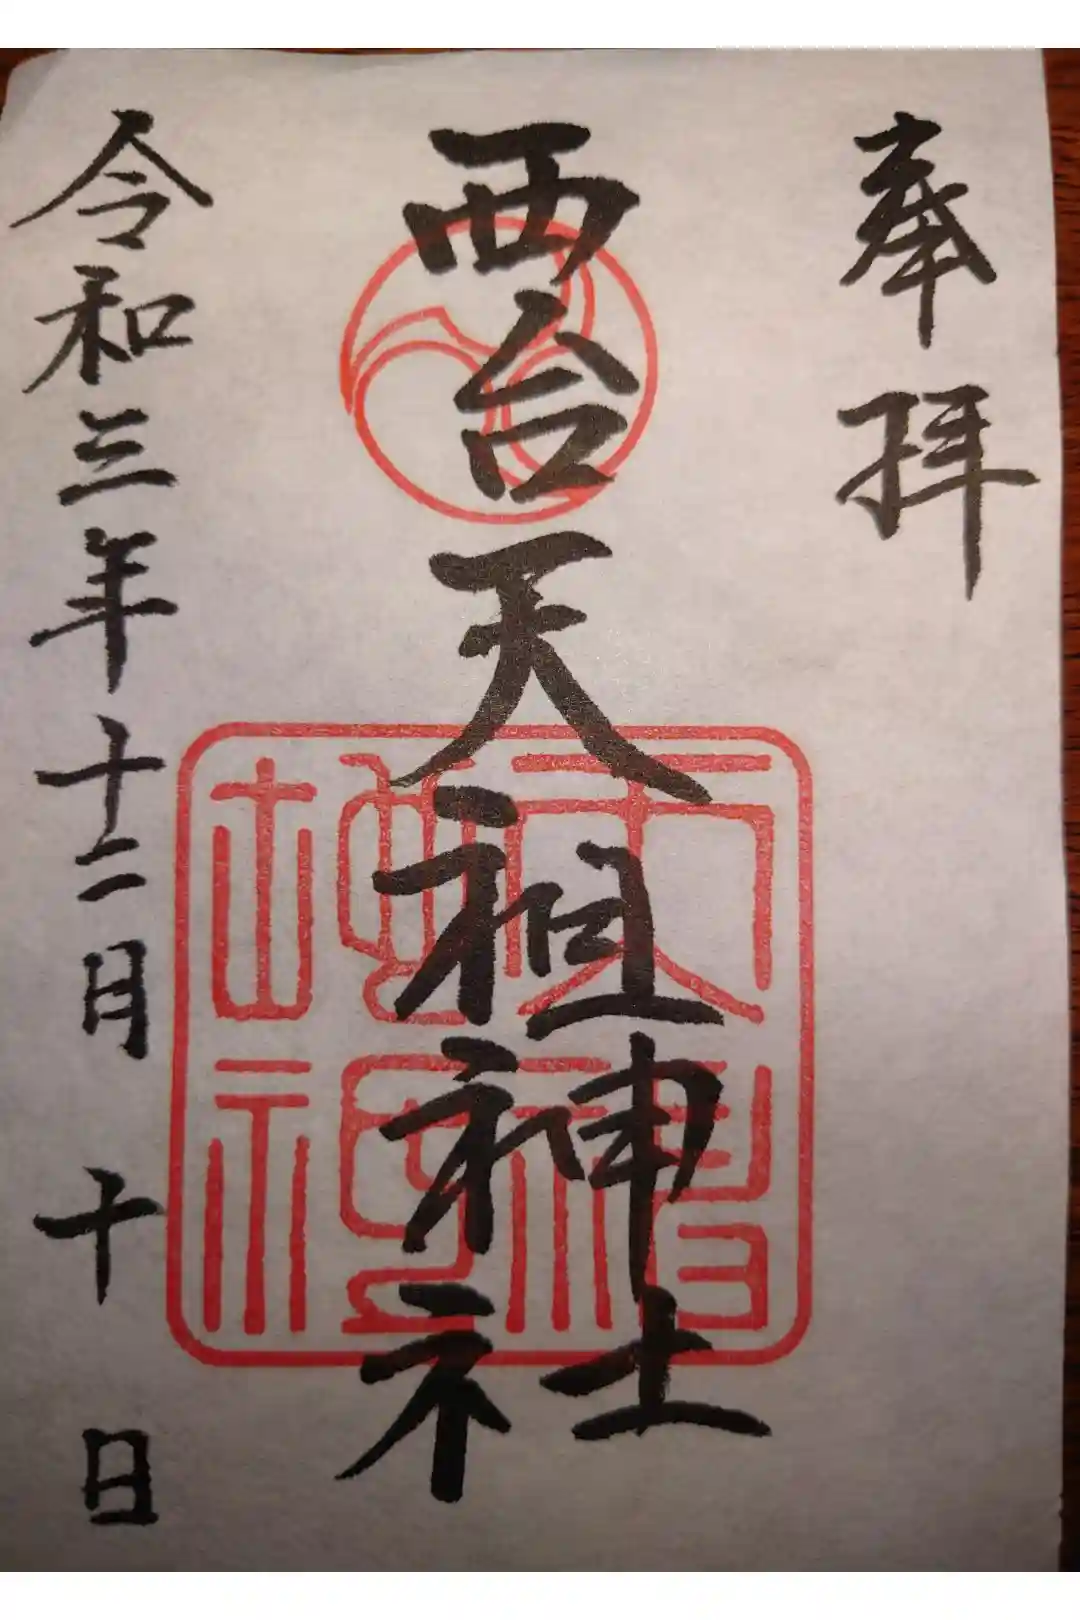 奉拝
西台天祖神社
令和三年十二月十日